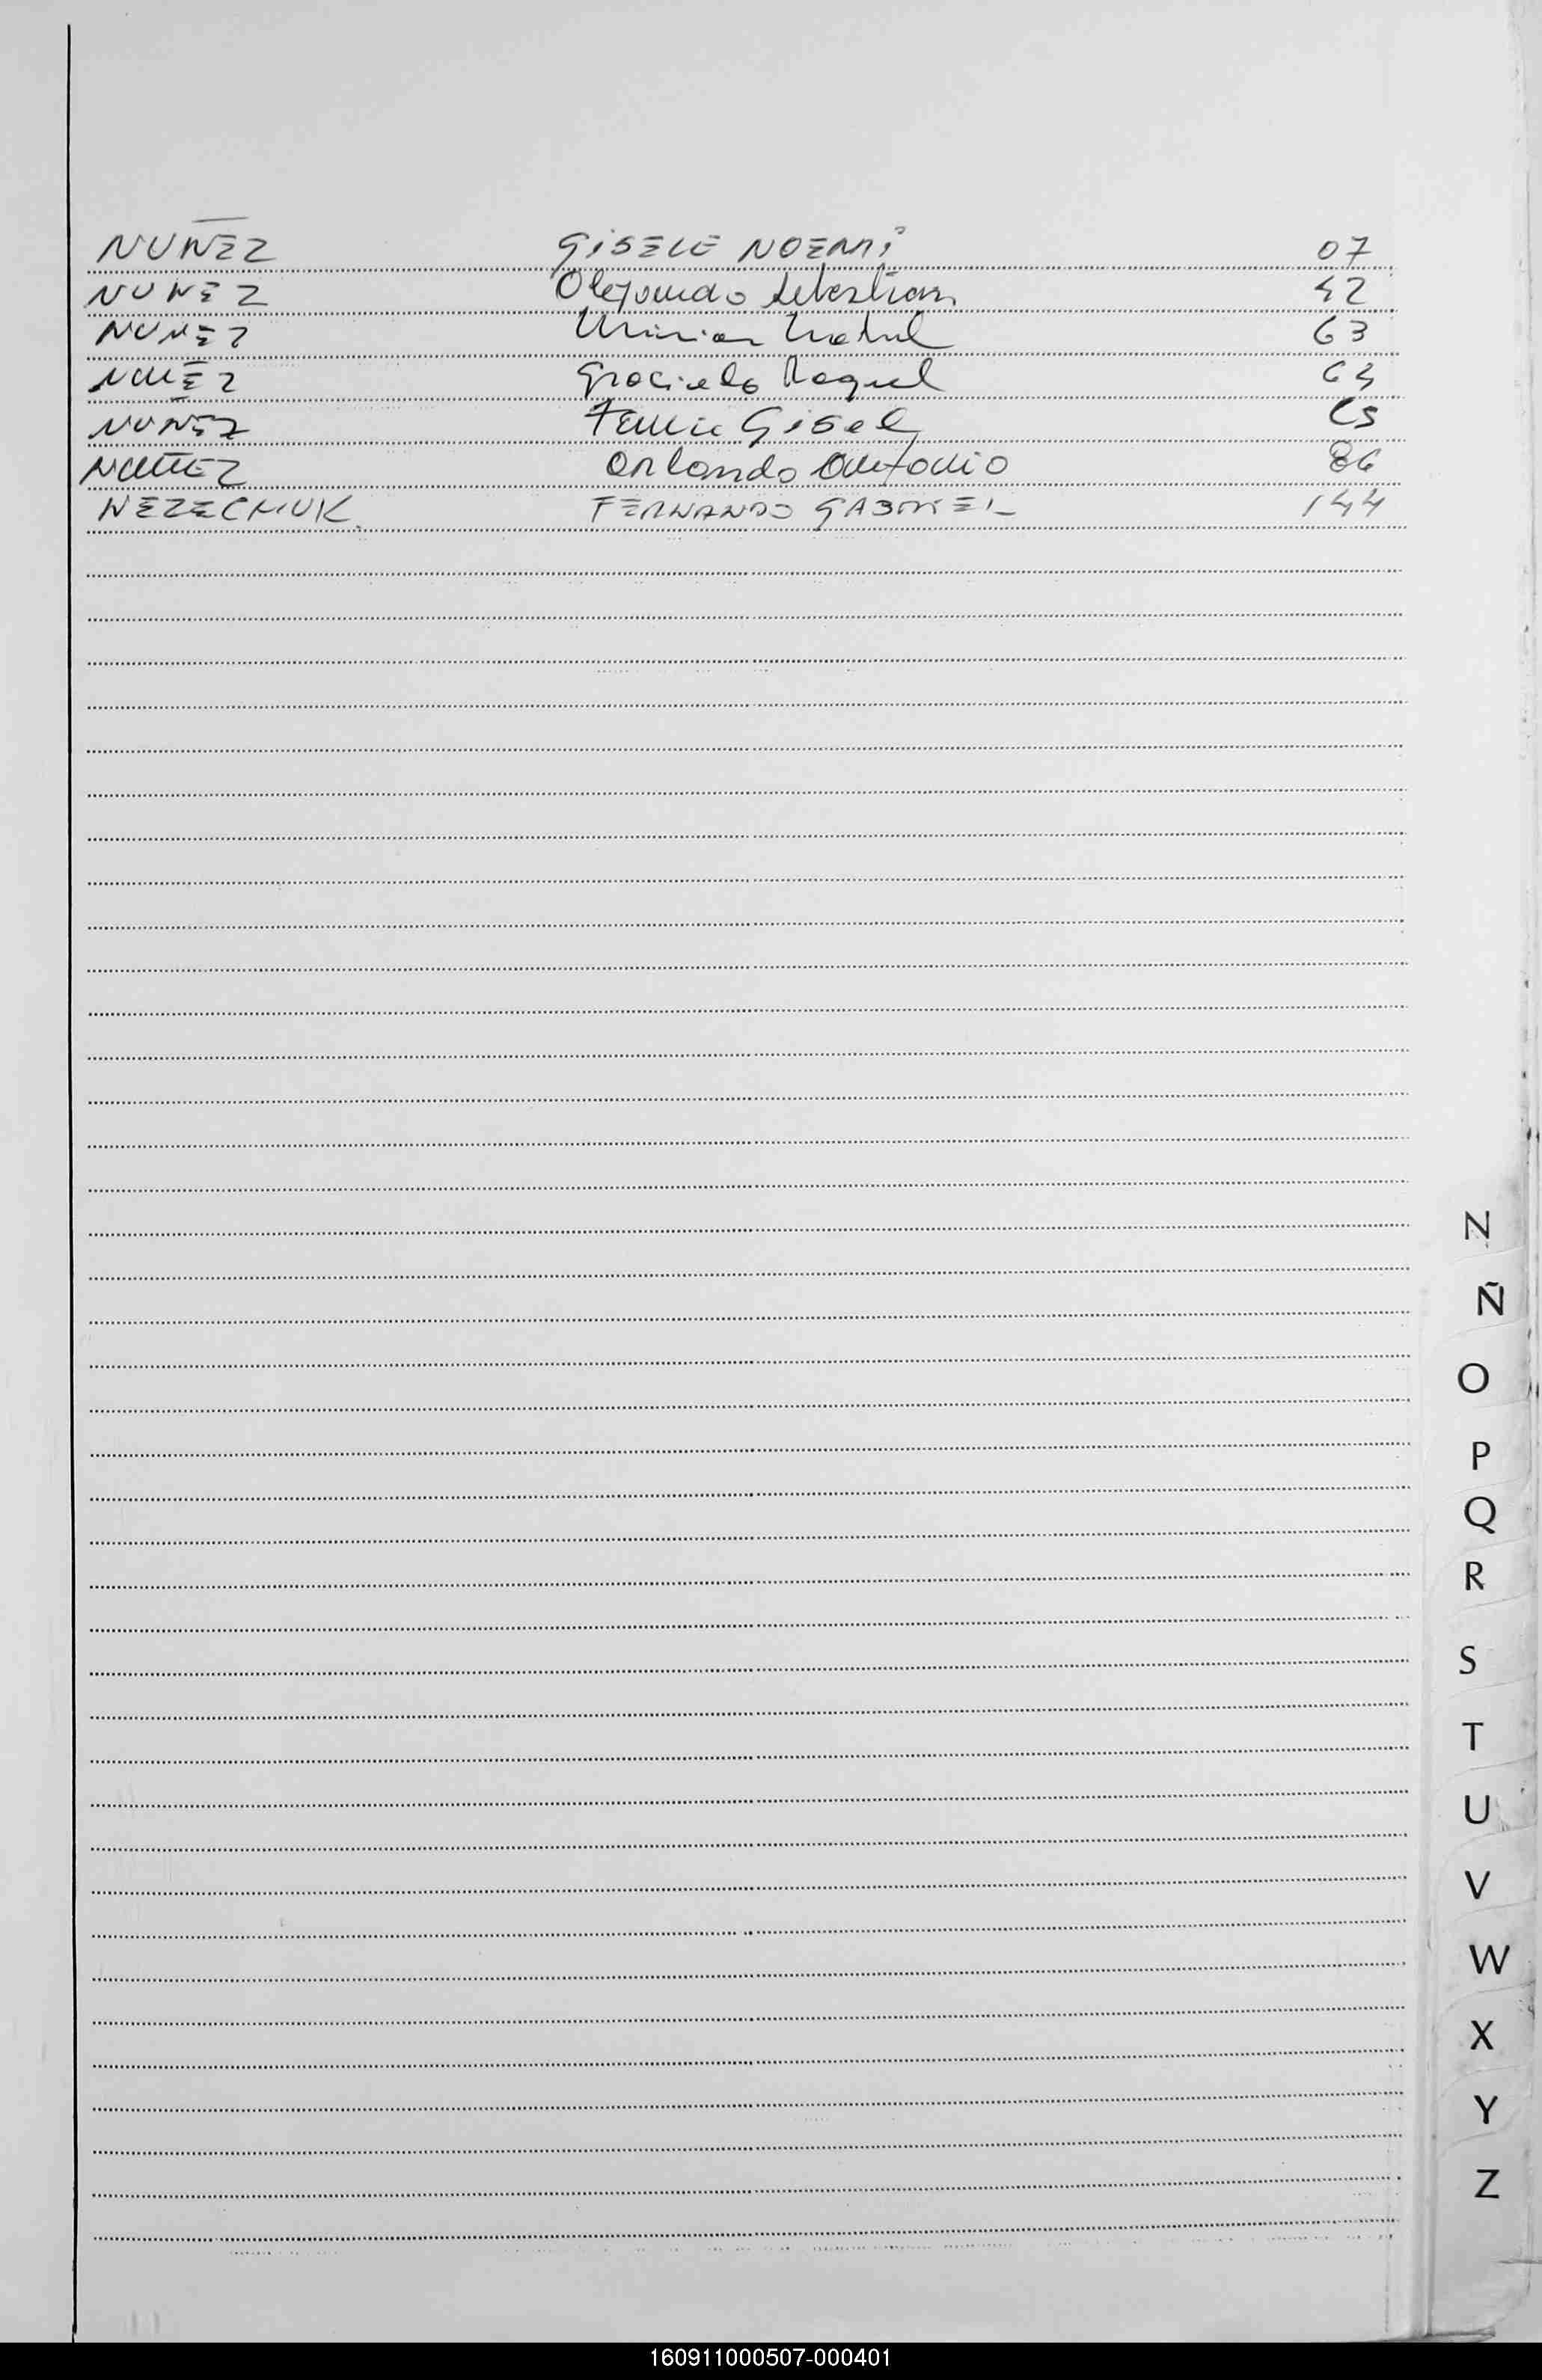 NUÑEZ GISELE NOEMI 07
NUÑEZ Alejandro Sebastian 42
NUÑEZ Mirian 63
NUÑEZ Graciela Raquel 64
NUÑEZ Gisel 65
NUÑEZ Orlando Antonio 86
NEZECHUK FERNANDO GABRIEL 144
N
Ñ
O
P
Q
R
S
T
U
V
W
X
Y
Z
160911000507-000401